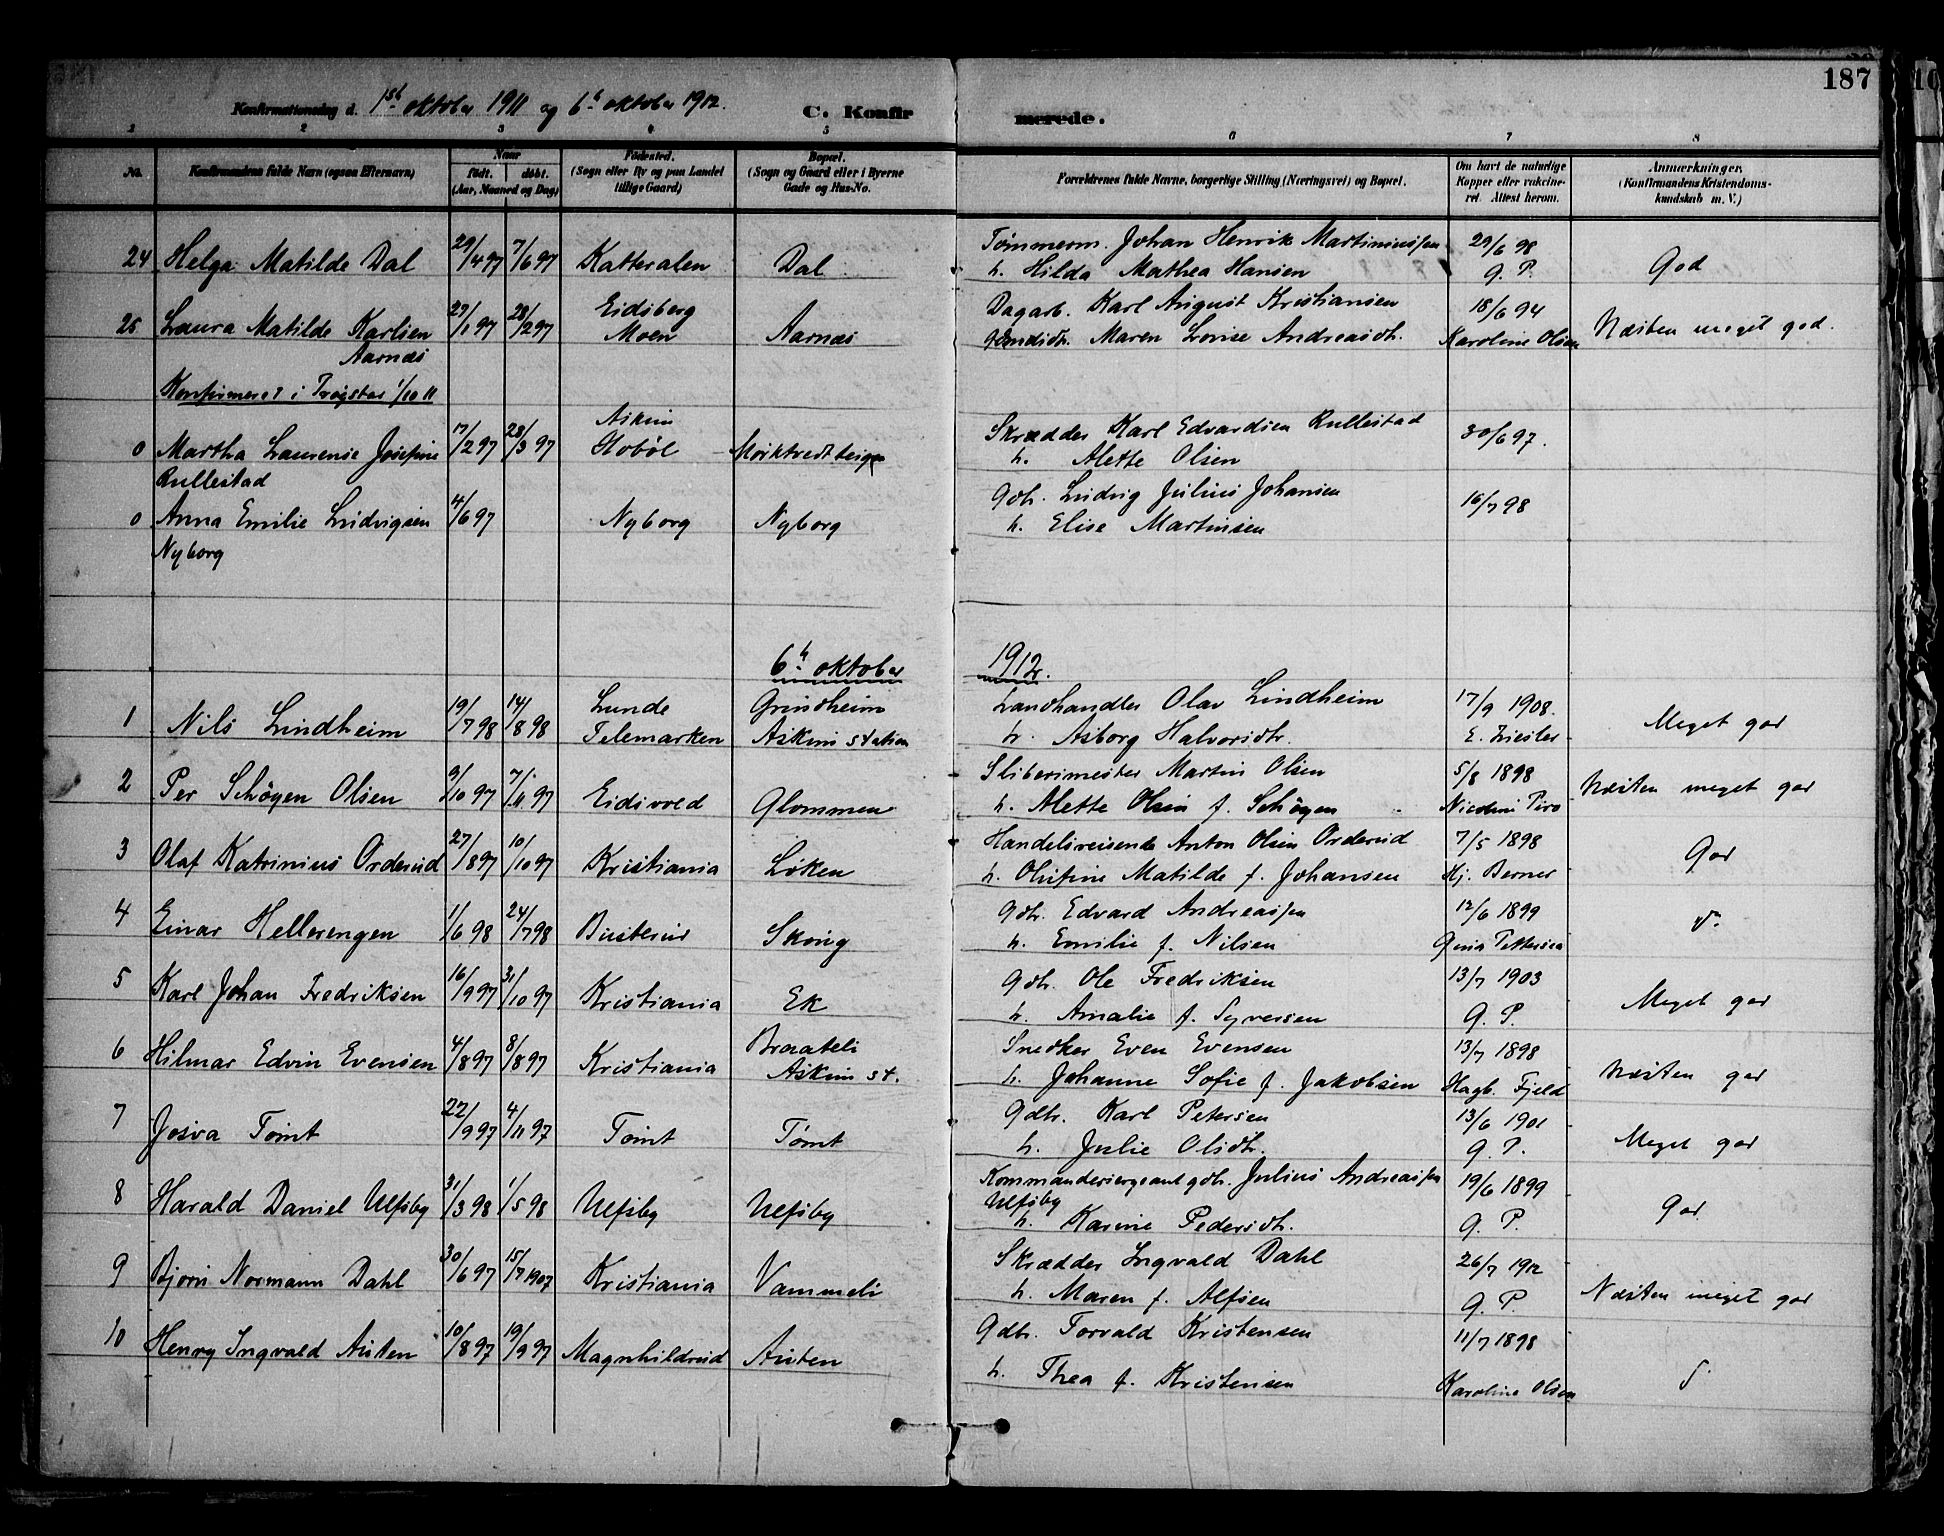 187
Konfirmationsdag d. 1st oktober 1911 og 6t oktober 1912. C. Konfirmerede.
1 2 3 4 5 6 7 8
No. Konfirmandens fulde Navn (ogsaa Efternavn) Naar født. døbt. (Aar, Maaned og Dag) Fødested. (Sogn eller By og paa Landet tillige Gaard) Bopæl. (Sogn og Gaard eller i Byerne Gade og Hus-No. Forældrenes fulde Navne, borgerlige Stilling (Næringsvei) og Bopæl. Om havt de naturlige Kopper eller vakcineret. Attest herom. Anmærkninger. (Konfirmandens Kristendomskundskab m. V.)
24 Helga Matilde Dal 29/4 97 7/6 97 Katteralen Dal Tømmerm. Johan Henrik Martiniussen 29/6 98
h. Hilda Mathea Hansen G. P. God
25 Laura Matilde Karlsen 27/1 97 28/2 97 Eidsberg Dagarb. Karl August Kristiansen 18/6 94
Aarnæs Moen Aarnæs Maren Lovise Andreasdtr. Karoline Olsen Næsten meget god.
Konfirmeret i Trøgstad 1/10 11
0 Martha Laurense Josefine 17/2 97 28/3 97 Askim Skrædder Karl Edvardsen Rullestad 30/6 97.
Rullestad Hobøl h. Alette Olsen
0 Anna Emilie Ludvigsen 4/6 97 Nyborg Nyborg Gdb. Ludvig Julius Johansen 16/7 98
Nyborg h. Elise Martinsen
6t oktober 1912.
1 Nils Lindheim 19/7 98 14/8 98 Lunde Grindheim Landhandler Olav Lindheim 17/9 1908.
Telemarken Askim station h. Asborg Halvorsdtr. Meget god
2 Per Schøyen Olsen 9/10 97 7/11 97 Eidsvold Glommen Sliberimester Martin Olsen 5/8 1898
h. Alette Olsen f. Schøyen Næsten meget god
3 Olaf Katrinius Orderud 27/8 97 10/10 97 Kristiania Løken Handelsreisende Anton Olsen Orderud 7/5 1898
h. Olufine Matilde f. Johansen Hj. Berner God
4 Einar Hellerengen 1/6 98 24/7 98 Busterud Skoug Gdb. Edvard Andreassen 12/6 1899
h. Emilie f. Nilsen Pettersen
5 Karl Johan Fredriksen 16/9 97 31/10 97 Kristiania Ek Gdb. Ole Fredriksen 13/7 1903
h. Amalie f. Syversen G. P. Meget god
6 Hilmar Edvin Evensen 4/8 97 8/8 97 Kristiania Braateli Snedker Even Evensen 13/7 1898
Askim st. h. Johanne Sofie f. Jakobsen Hagb. Fjeld Næsten god
7 Josva Tømt 22/9 97 4/11 97 Tømt Tømt Gdbr. Karl Petersen 13/6 1901
h. Julie Olsdtr. G. P. Meget god
8 Harald Daniel Ulfsby 31/3 98 1/5 98 Ulfsby Ulfsby Kommandersergeant gdb. Julius Andreassen 19/6 1899
Ulfsby
h. Karine Pedersdtr. G. P. God
9 Bjørn Normann Dahl 30/6 97 15/7 1907 Kristiania Vammeli Skrædder Ingvald Dahl 26/7 1912
h. Maren f. Alfsen G. P. Næsten meget god
10 Henry Ingvald Austen 10/8 97 19/9 97 Magnhildrud Austen Gdbr. Torvald Kristensen 11/7 1898
h. Thea f. Kristensen Karoline Olsen